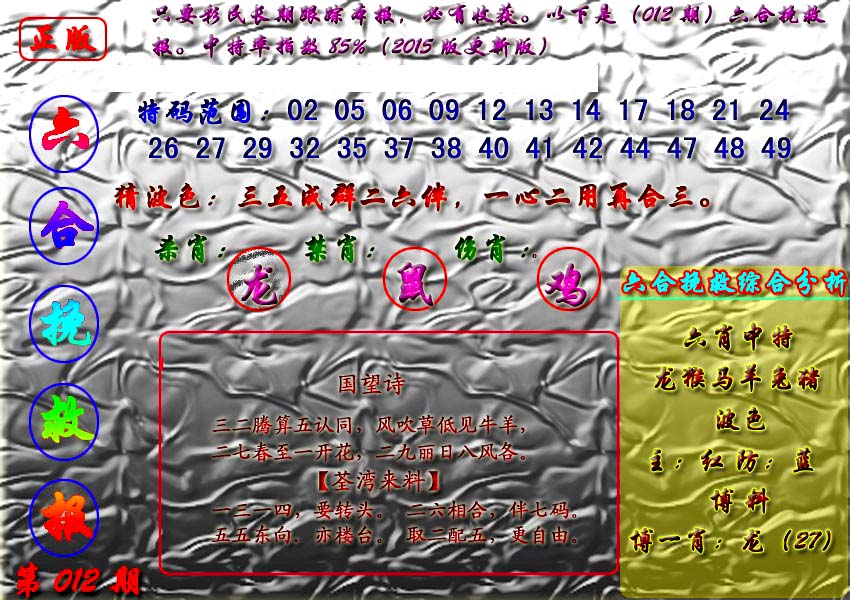 正版
只要彩民长期跟踪本报，必有收获。以下是（012期）六合挽救
报。中特率指数85%（2015版更新版）
六合挽救报
第012期
特码范围：02 05 06 09 12 13 14 17 18 21 24
26 27 29 32 35 37 38 40 41 42 44 47 48 49
猜波色：三五成群二六伴，一心二用再合三。
杀肖：龙 禁肖：鼠 伤肖：鸡
国望诗
三二腾算五认同，风吹草低见牛羊，
二七春至一开花，二九丽日八风各。
【荃湾来料】
一三一四，要转头。 二六相合，伴七码。
五五东向，亦楼台。 取二配五，更自由。
六合挽救综合分析
六肖中特
龙猴马羊兔猪
波色
主：红防：蓝
博料
博一肖：龙（27）